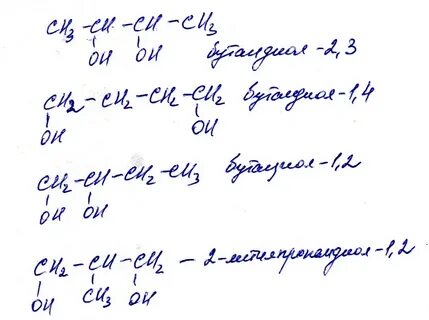 CH3 - CH - CH - CH3
OH OH
бутандиол-2,3
CH2 - CH2 - CH2 - CH2 бутандиол-1,4
OH OH
CH2 - CH - CH2 - CH3 бутандиол-1,2
OH OH
CH2 - CH - CH2 - 2-метилпропандиол-1,2
OH CH3 OH